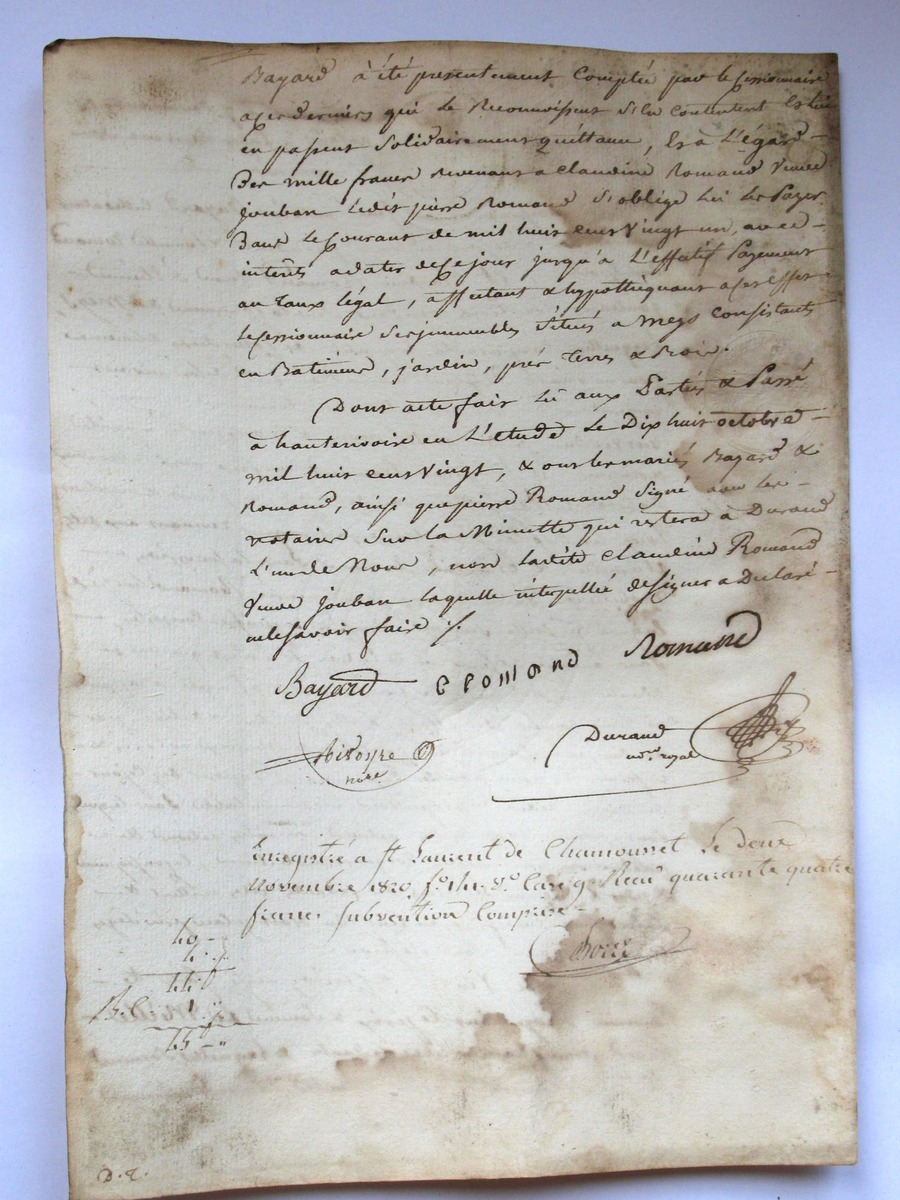 Bayard à été presentement Comptée par le Cessionnaire
a ces derniers qui le Reconnoissent s'en Contentent Et lui
en passent Solidairement quittance, Et à L'égard
Des mille francs Revenans a Claudine Romand Veuve
jouban Ledit pierre Romand s'oblige Lui Les Payer
Dans Le Courant de mil huit cent Vingt un, avec
intérêts a dater de Ce jour jusqu'à L'effectif Payement
au Taux légal, affectant & hypothéquant a cet effet
Le Cessionnaire Ses immeubles Situés a meys Consistants
en Batiment, jardin, prés Terres & Bois.
Dont acte fait Lu aux Parties & Passé
à hauterivoire en L'étude Le Dix huit octobre
mil huit cent Vingt, & ont Les mariés Bayard &
Romand, ainsi que pierre Romand Signé avec les
notaires Sur la Minutte qui restera à Durand
L'un de Nous, non Ladite Claudine Romand
Veuve jouban laquelle interpellée de Signer a Declaré
ne le Savoir faire ./.
Bayard Romand Romand
Durand
no.re royal
no.re
Enregistré a St Laurent de Chamousset le deux
Novembre 1820 f.o 141 v.o Case 9 Recu quarante quatre
francs subvention Comprise
40 -
4 . -
44
1
45 - "
D. R.